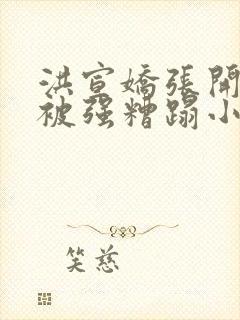 洪宣嬌張開
被强糟蹋小
笑慈